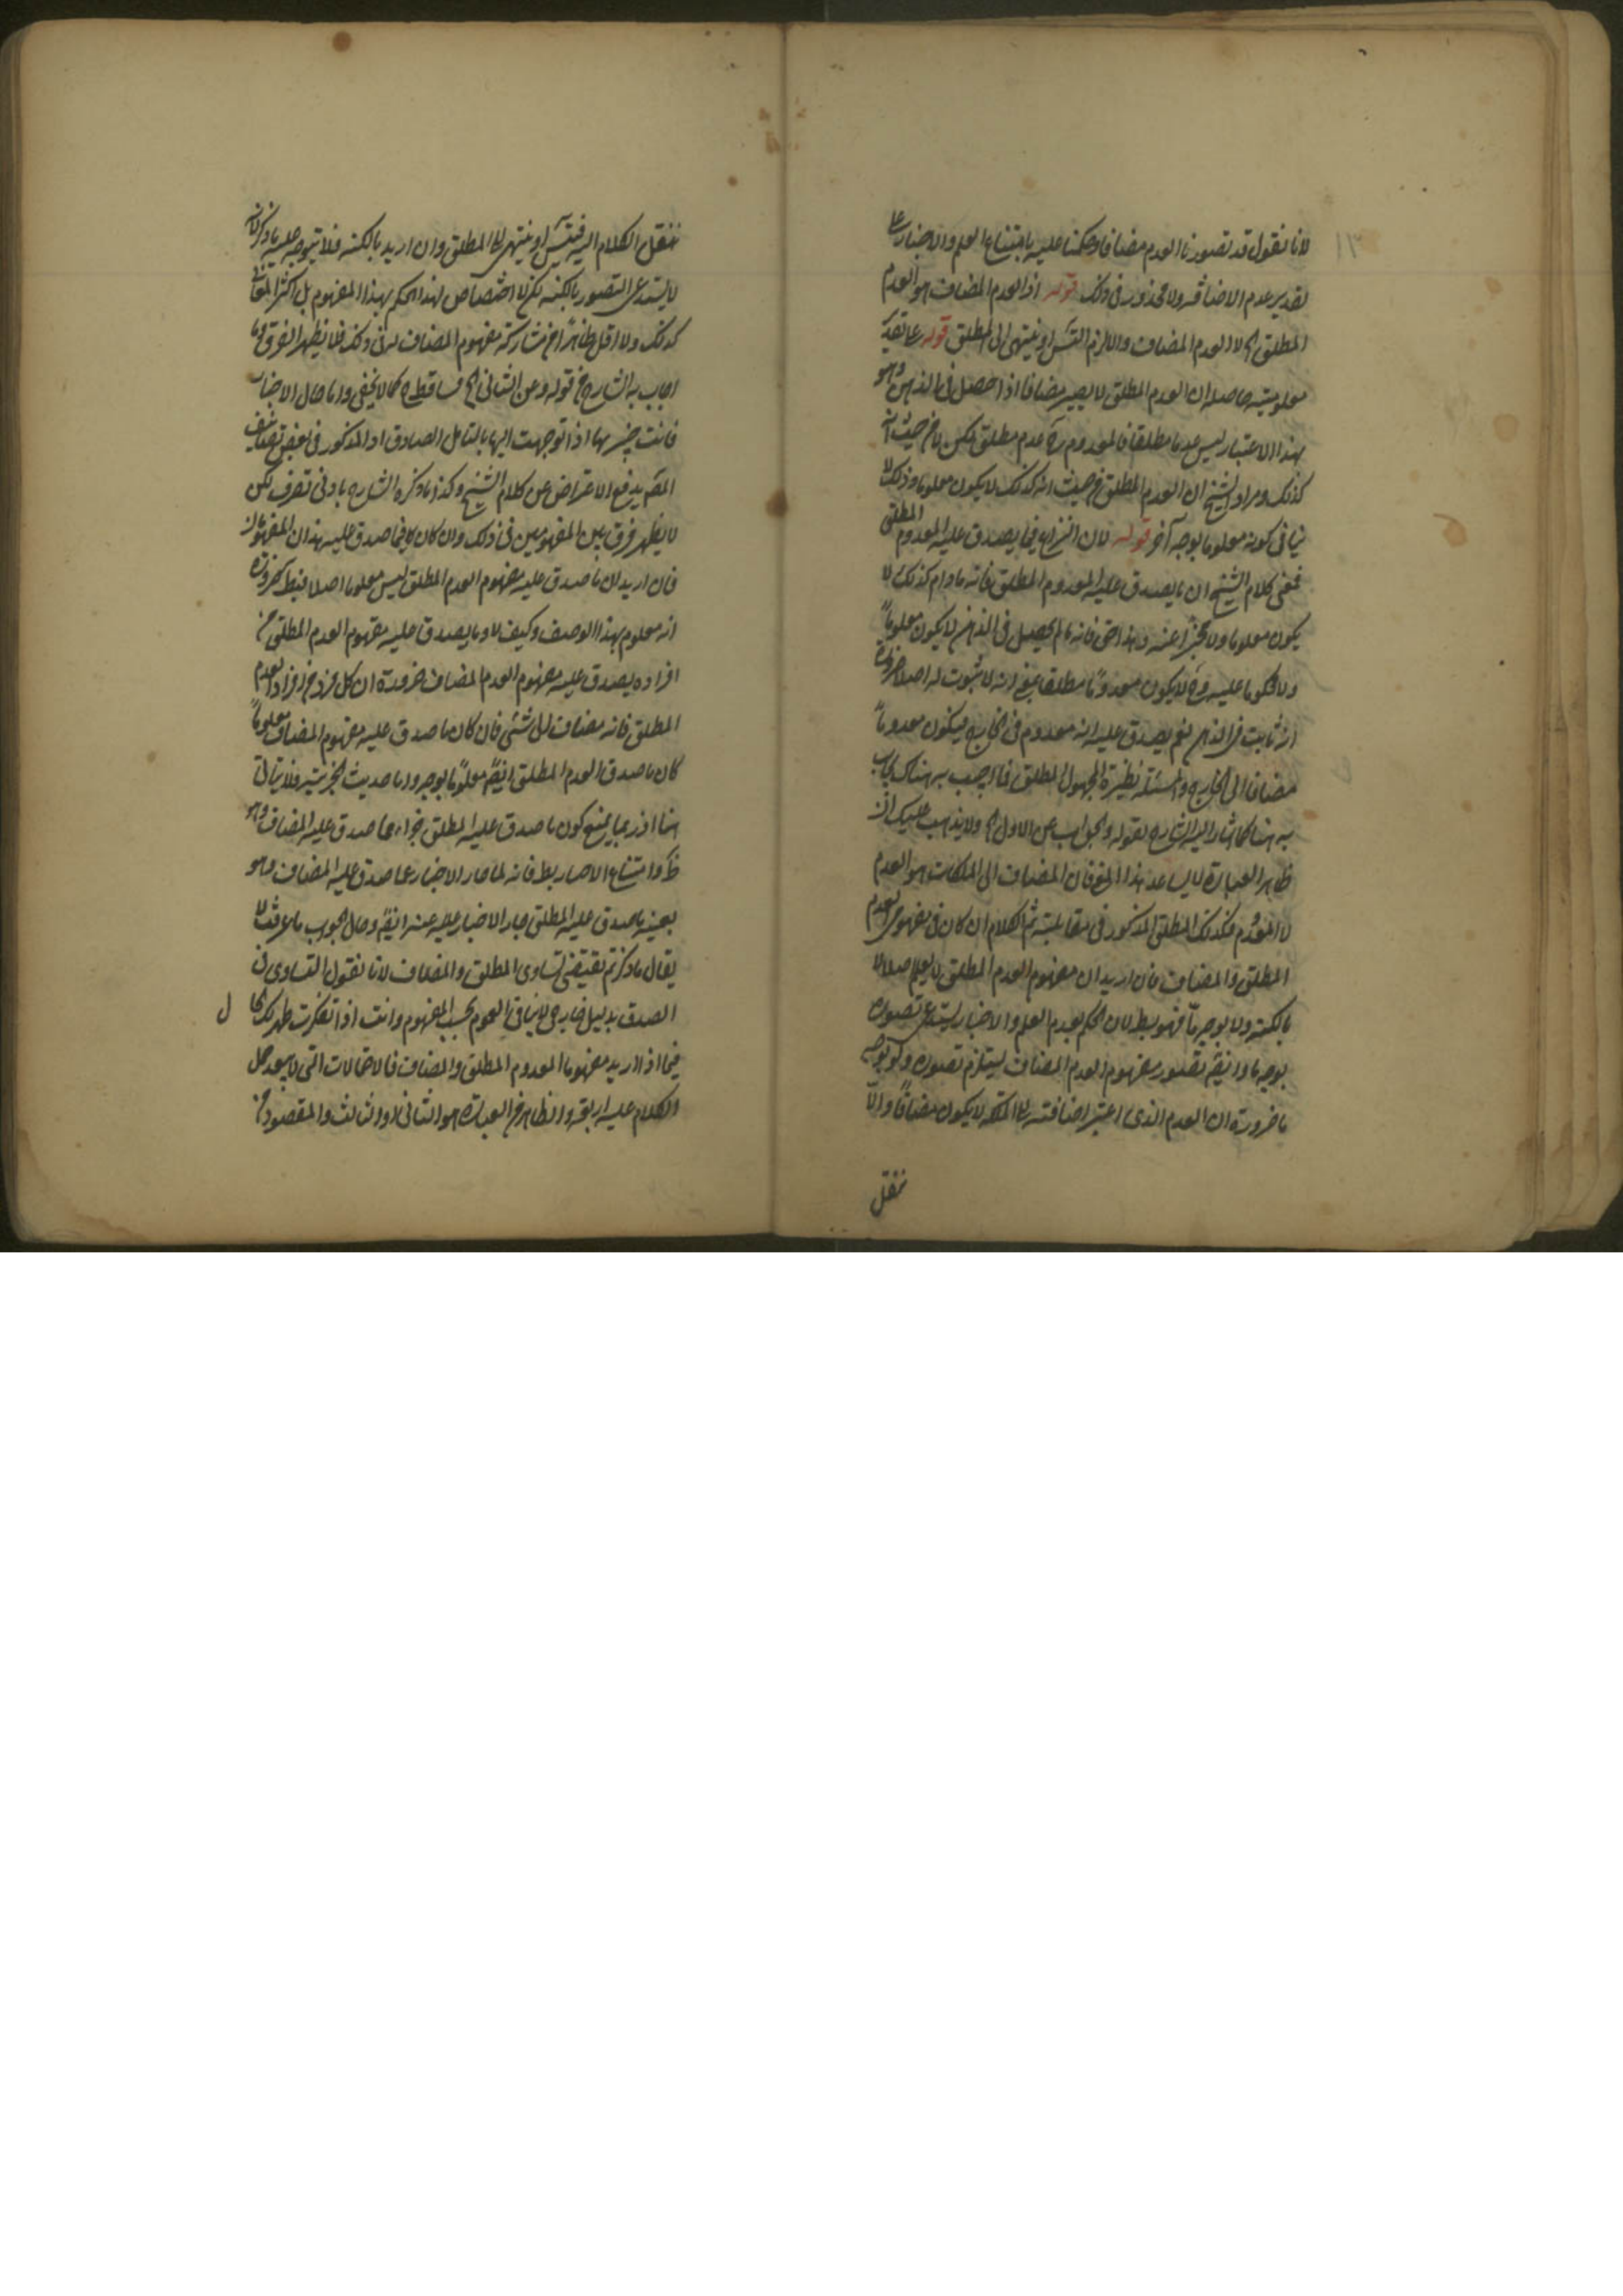 ١٣
لانا نقول قد تصورنا العدم مضافا وحكمنا عليه بامتناع العلم والاخبار على
تقدير عدم الاضافه ولا محذور فى ذلك قوله اذ العدم المضاف هو العدم
المطلق الخ لا العدم المضاف والا لزم التسلسل او ينتهى الى المطلق قوله على تقدير
معلوميته حاصله ان العدم المطلق لا يصير مضافا اذا حصل فى الذهن وهو
بهذا الاعتبار ليس عدما مطلقا فالمعدوم عدم مطلق لكن لا من حيث انه
كذلك ومراد الشيخ ان العدم المطلق من حيث انه كذلك لا يكون معلوما وذلك لا
ينافى كونه معلوما بوجه آخر قوله لان النزاع فيما يصدق عليه المعدوم المطلق
فمعنى كلام الشيخ ان ما يصدق عليه المعدوم المطلق فانه مادام كذلك لا
يكون معلوما ولا مخبرا عنه وهذا حق فانه ما لم يحصل فى الذهن لا يكون معلوماً
ولا محكوما عليه وح لا يكون معدومًا مطلقا بمعنى انه لا ثبوت له اصلا ضرورة
انه ثابت فى الذهن نعم يصدق عليه انه معدوم فى الخارج فيكون معدوماً
مضافا الى الخارج والمسئلة نظيرة المجهول المطلق فما اجيب به هناك يجاب
به هنا كما اشار اليه الشارح بقوله والجواب عن الاول الخ ولا يذهب عليك ان
ظاهر العبارة لا يساعد هذا المعنى فان المضاف الى الملكات هو العدم
لا المعدوم فكذلك المطلق المذكور فى مقابلته ثم الكلام ان كان فى مفهومى العدم
المطلق والمضاف فان اريد ان مفهوم العدم المطلق لا يعلم اصلا لا
بالكنه ولا بوجه ما فهو بط لان الحكم بعدم العلم والاخبار يستدعى تصوره
بوجه ما وايضا تصور مفهوم العدم المضاف يستلزم تصوره ولو بوجه
ما ضرورة ان العدم الذى اعتبر اضافته الى الملكة لا يكون مضافًا والّا
ننقل
ننقل الكلام اليه فيتسلسل او ينتهى الى المطلق وان اريد بالكنه فلا يتوجه عليه ما ذكر لانه
لا يستدعى التصور بالكنه لكن لا اختصاص لهذا الحكم بهذا المفهوم بل اكثر المفهومات
كذلك ولا اقل من مشاركة مفهوم المضاف له فى ذلك فلا يظهر الفرق وما
اجاب به الشارح من قوله وعن الثانى الخ ساقط ح كما لا يخفى واما حال الاخبار
فانت خبير بها اذا توجهت اليها بالتامل الصادق اذ المذكور فى بعض تصانيف
المصنف يدفع الاعتراض عن كلام الشيخ وكذا ما ذكره الشارح بادنى تصرف لكن
لا يظهر فرق بين المفهومين فى ذلك وان كان فيما صدق عليه هذان المفهومان
فان اريد ان ما صدق عليه مفهوم العدم المطلق ليس معلوما اصلا فبط ضرورة
انه معلوم بهذا الوصف وكيف لا وما يصدق عليه مفهوم العدم المطلق من
افراده يصدق عليه مفهوم العدم المضاف ضرورة ان كل فرد من افراد العدم
المطلق فانه مضاف الى شئ فان كان ما صدق عليه مفهوم المضاف معلوماً
كان ما صدق العدم المطلق ايضا معلومًا بوجه واما حديث الجزئية فلا يتاتى
هنا اذ ربما يمنع كون ما صدق عليه المطلق جزاء مما صدق عليه المضاف وهو
ظ وامتناع الاخبار بط فانه لما جاز الاخبار عما صدق عليه المضاف وهو
بعينه ما صدق عليه المطلق جاز الاخبار عنه ايضا وحال الجواب ما عرفت لا
يقال ما ذكرتم يقتضى تساوى المطلق والمضاف لانا نقول التساوى فى
الصدق بدليل خارجى لا ينافى العموم بحسب المفهوم وانت اذا تفكرت ظهر لك
ل
فيما اذا اريد مفهوما المعدوم المطلق والمضاف فالاحتمالات التى حمل
الكلام عليه اربعة والظاهر من العبارة هو الثانى او الثالث والمقصود من